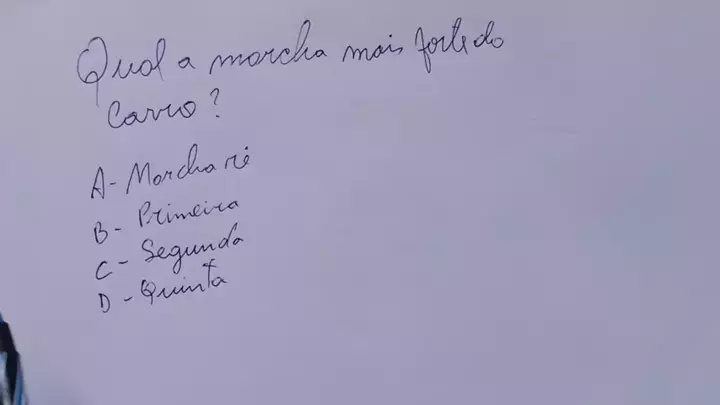 Qual a marcha mais forte do
Carro?
A- Marcha ré
B- Primeira
C- Segunda
D- Quinta